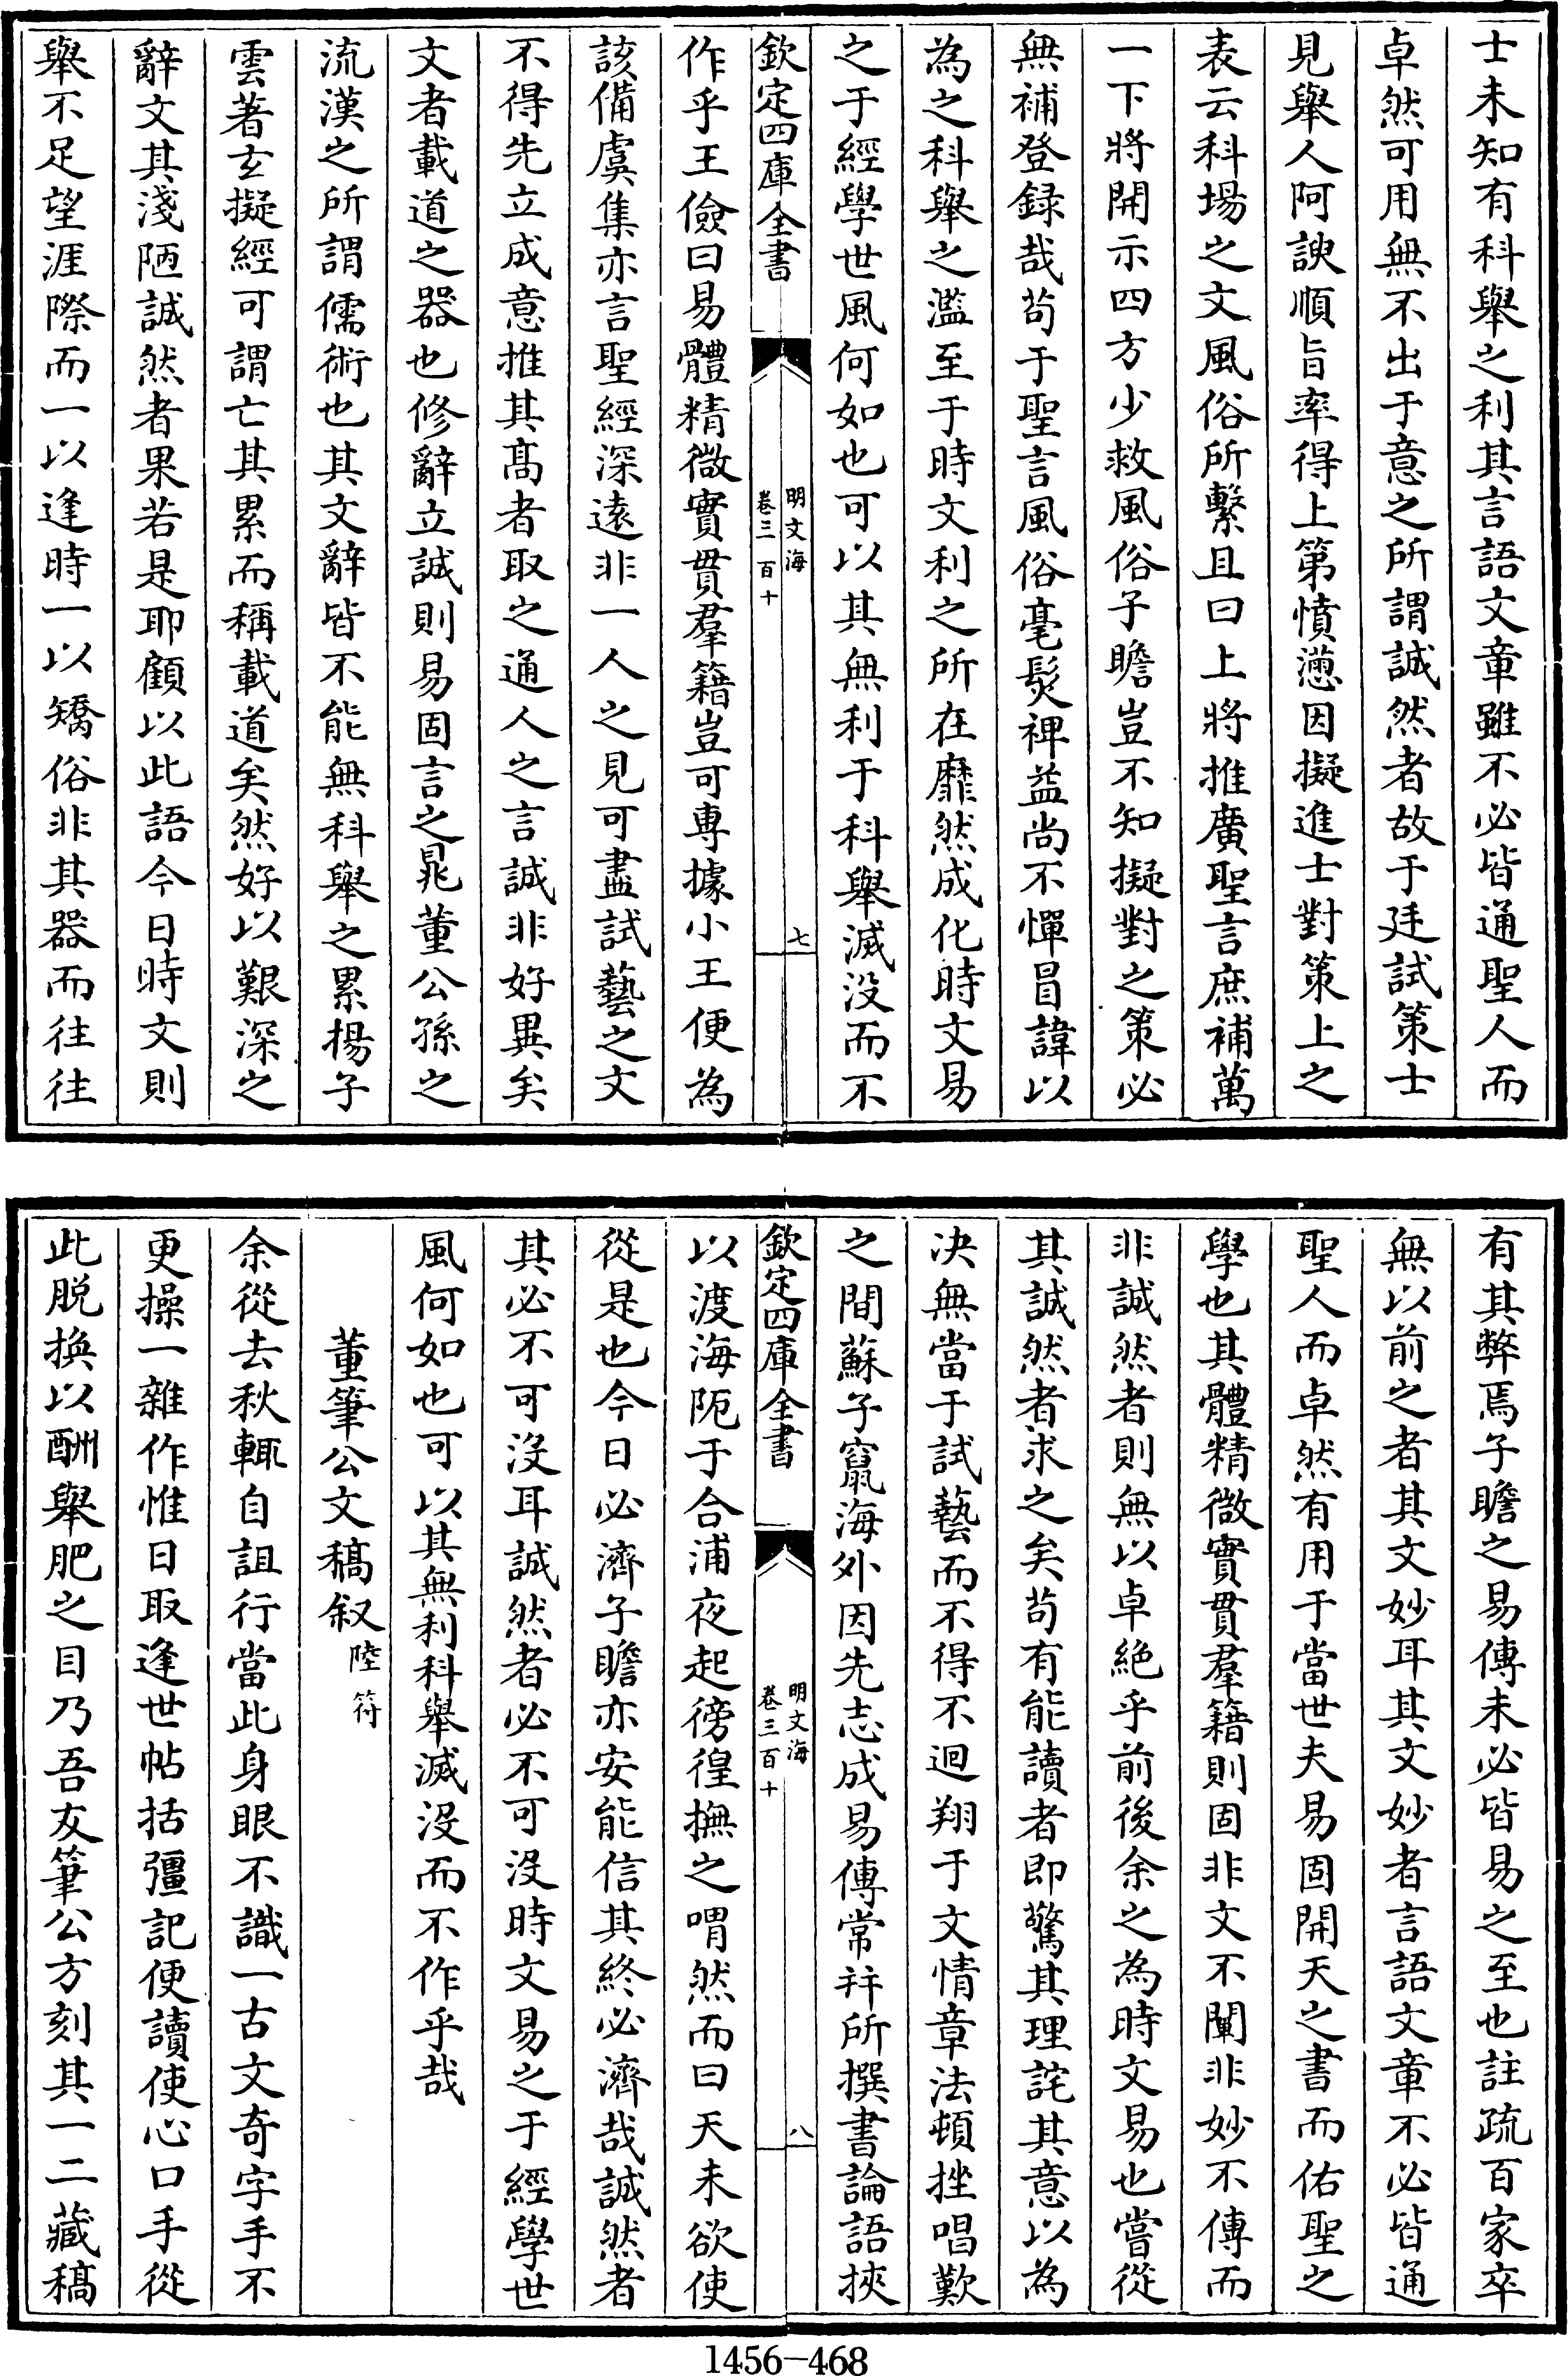 士未知有科舉之利其言語文章雖不必皆通聖人而
卓然可用無不出于意之所謂誠然者故于廷試策士
見舉人阿諛順旨率得上第憤懣因擬進士對策上之
表云科場之文風俗所繫且曰上將推廣聖言庶補萬
一下將開示四方少救風俗子瞻豈不知擬對之策必
無補登録哉苟于聖言風俗毫髮裨益尚不憚冒諱以
為之科舉之濫至于時文利之所在靡然成化時文易
之于經學世風何如也可以其無利于科舉滅没而不
欽定四庫全書
明文海
卷三百十
七
作乎王儉曰易體精微實貫羣籍豈可專據小王便為
該備虞集亦言聖經深遠非一人之見可盡試藝之文
不得先立成意推其髙者取之通人之言誠非好異矣
文者載道之器也修辭立誠則易固言之鼂董公孫之
流漢之所謂儒術也其文辭皆不能無科舉之累揚子
雲著玄擬經可謂亡其累而稱載道矣然好以艱深之
辭文其淺陋誠然者果若是耶顧以此語今日時文則
舉不足望涯際而一以逢時一以矯俗非其器而往往
有其弊焉子瞻之易傳未必皆易之至也註疏百家卒
無以前之者其文妙耳其文妙者言語文章不必皆通
聖人而卓然有用于當世夫易固開天之書而佑聖之
學也其體精微實貫羣籍則固非文不闡非妙不傳而
非誠然者則無以卓絶乎前後余之為時文易也嘗從
其誠然者求之矣苟有能讀者即驚其理詫其意以為
决無當于試藝而不得不迴翔于文情章法頓挫唱歎
之間蘇子竄海外因先志成易傳常并所撰書論語挾
欽定四庫全書
明文海
卷三百十
八
以渡海阨于合浦夜起徬徨撫之喟然而曰天未欲使
從是也今日必濟子瞻亦安能信其終必濟哉誠然者
其必不可沒耳誠然者必不可没時文易之于經學世
風何如也可以其無利科舉滅沒而不作乎哉
董筆公文稿叙陸符
余從去秋輒自詛行當此身眼不識一古文奇字手不
更操一雜作惟日取逢世帖括彊記便讀使心口手從
此脱換以酬舉肥之目乃吾友筆公方刻其一二藏稿
1456-468